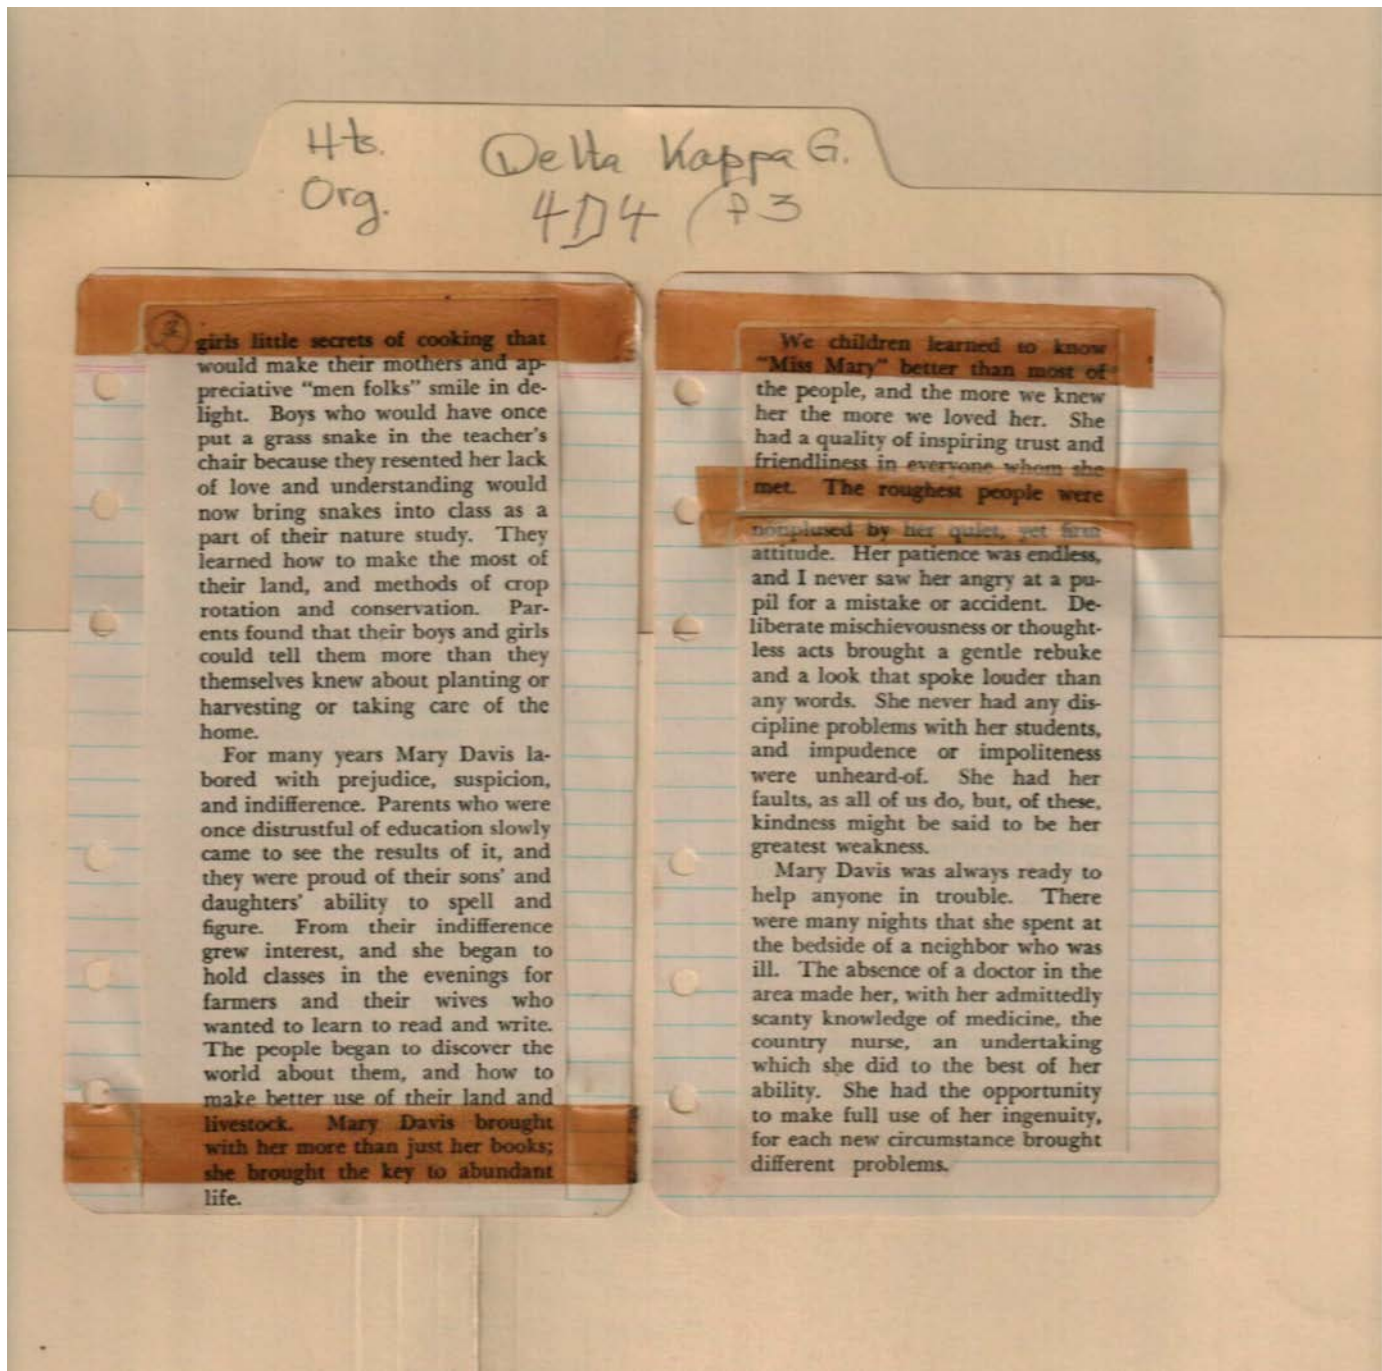 Hts. Delta Kappa G.
Org. 4D4 (P3
girls little secrets of cooking that
would make their mothers and ap-
preciative "men folks" smile in de-
light. Boys who would have once
put a grass snake in the teacher's
chair because they resented her lack
of love and understanding would
now bring snakes into class as a
part of their nature study. They
learned how to make the most of
their land, and methods of crop
rotation and conservation. Par-
ents found that their boys and girls
could tell them more than they
themselves knew about planting or
harvesting or taking care of the
home.
For many years Mary Davis la-
bored with prejudice, suspicion,
and indifference. Parents who were
once distrustful of education slowly
came to see the results of it, and
they were proud of their sons' and
daughters' ability to spell and
figure. From their indifference
grew interest, and she began to
hold classes in the evenings for
farmers and their wives who
wanted to learn to read and write.
The people began to discover the
world about them, and how to
make better use of their land and
livestock. Mary Davis brought
with her more than just her books;
she brought the key to abundant
life.
We children learned to know
"Miss Mary" better than most of
the people, and the more we knew
her the more we loved her. She
had a quality of inspiring trust and
friendliness in everyone whom she
met. The roughest people were
nonplused by her quiet, yet firm
attitude. Her patience was endless,
and I never saw her angry at a pu-
pil for a mistake or accident. De-
liberate mischievousness or thought-
less acts brought a gentle rebuke
and a look that spoke louder than
any words. She never had any dis-
cipline problems with her students,
and impudence or impoliteness
were unheard-of. She had her
faults, as all of us do, but, of these,
kindness might be said to be her
greatest weakness.
Mary Davis was always ready to
help anyone in trouble. There
were many nights that she spent at
the bedside of a neighbor who was
ill. The absence of a doctor in the
area made her, with her admittedly
scanty knowledge of medicine, the
country nurse, an undertaking
which she did to the best of her
ability. She had the opportunity
to make full use of her ingenuity,
for each new circumstance brought
different problems.